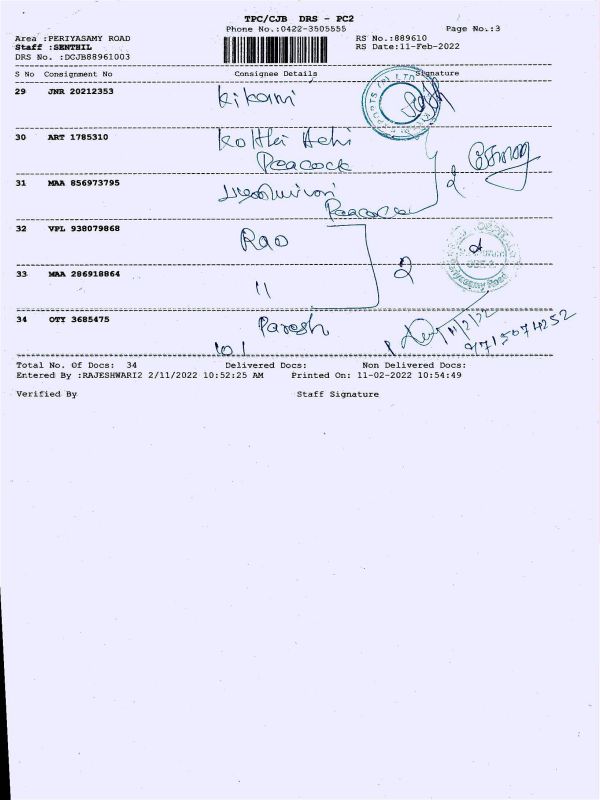 TPC/CJB DRS - PC2
Phone No.:0422-3505555 Page No.:3
Area :PERIYASAMY ROAD RS No.:889610
Staff :SENTHIL RS Date:11-Feb-2022
DRS No. :DCJB88961003
S No Consignment No Consignee Details Signature
29 JNR 20212353 Kikani
30 ART 1785310
Peacock
31 MAA 856973795
Peacock
32 VPL 938079868 Rao
33 MAA 286918864 11 2
34 OTY 3685475 Paresh 11/2/22
Total No. Of Docs: 34 Delivered Docs: Non Delivered Docs:
Entered By :RAJESHWARI2 2/11/2022 10:52:25 AM Printed On: 11-02-2022 10:54:49
Verified By Staff Signature